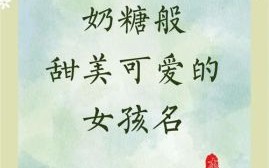 奶糖般
甜美可爱的
女孩名